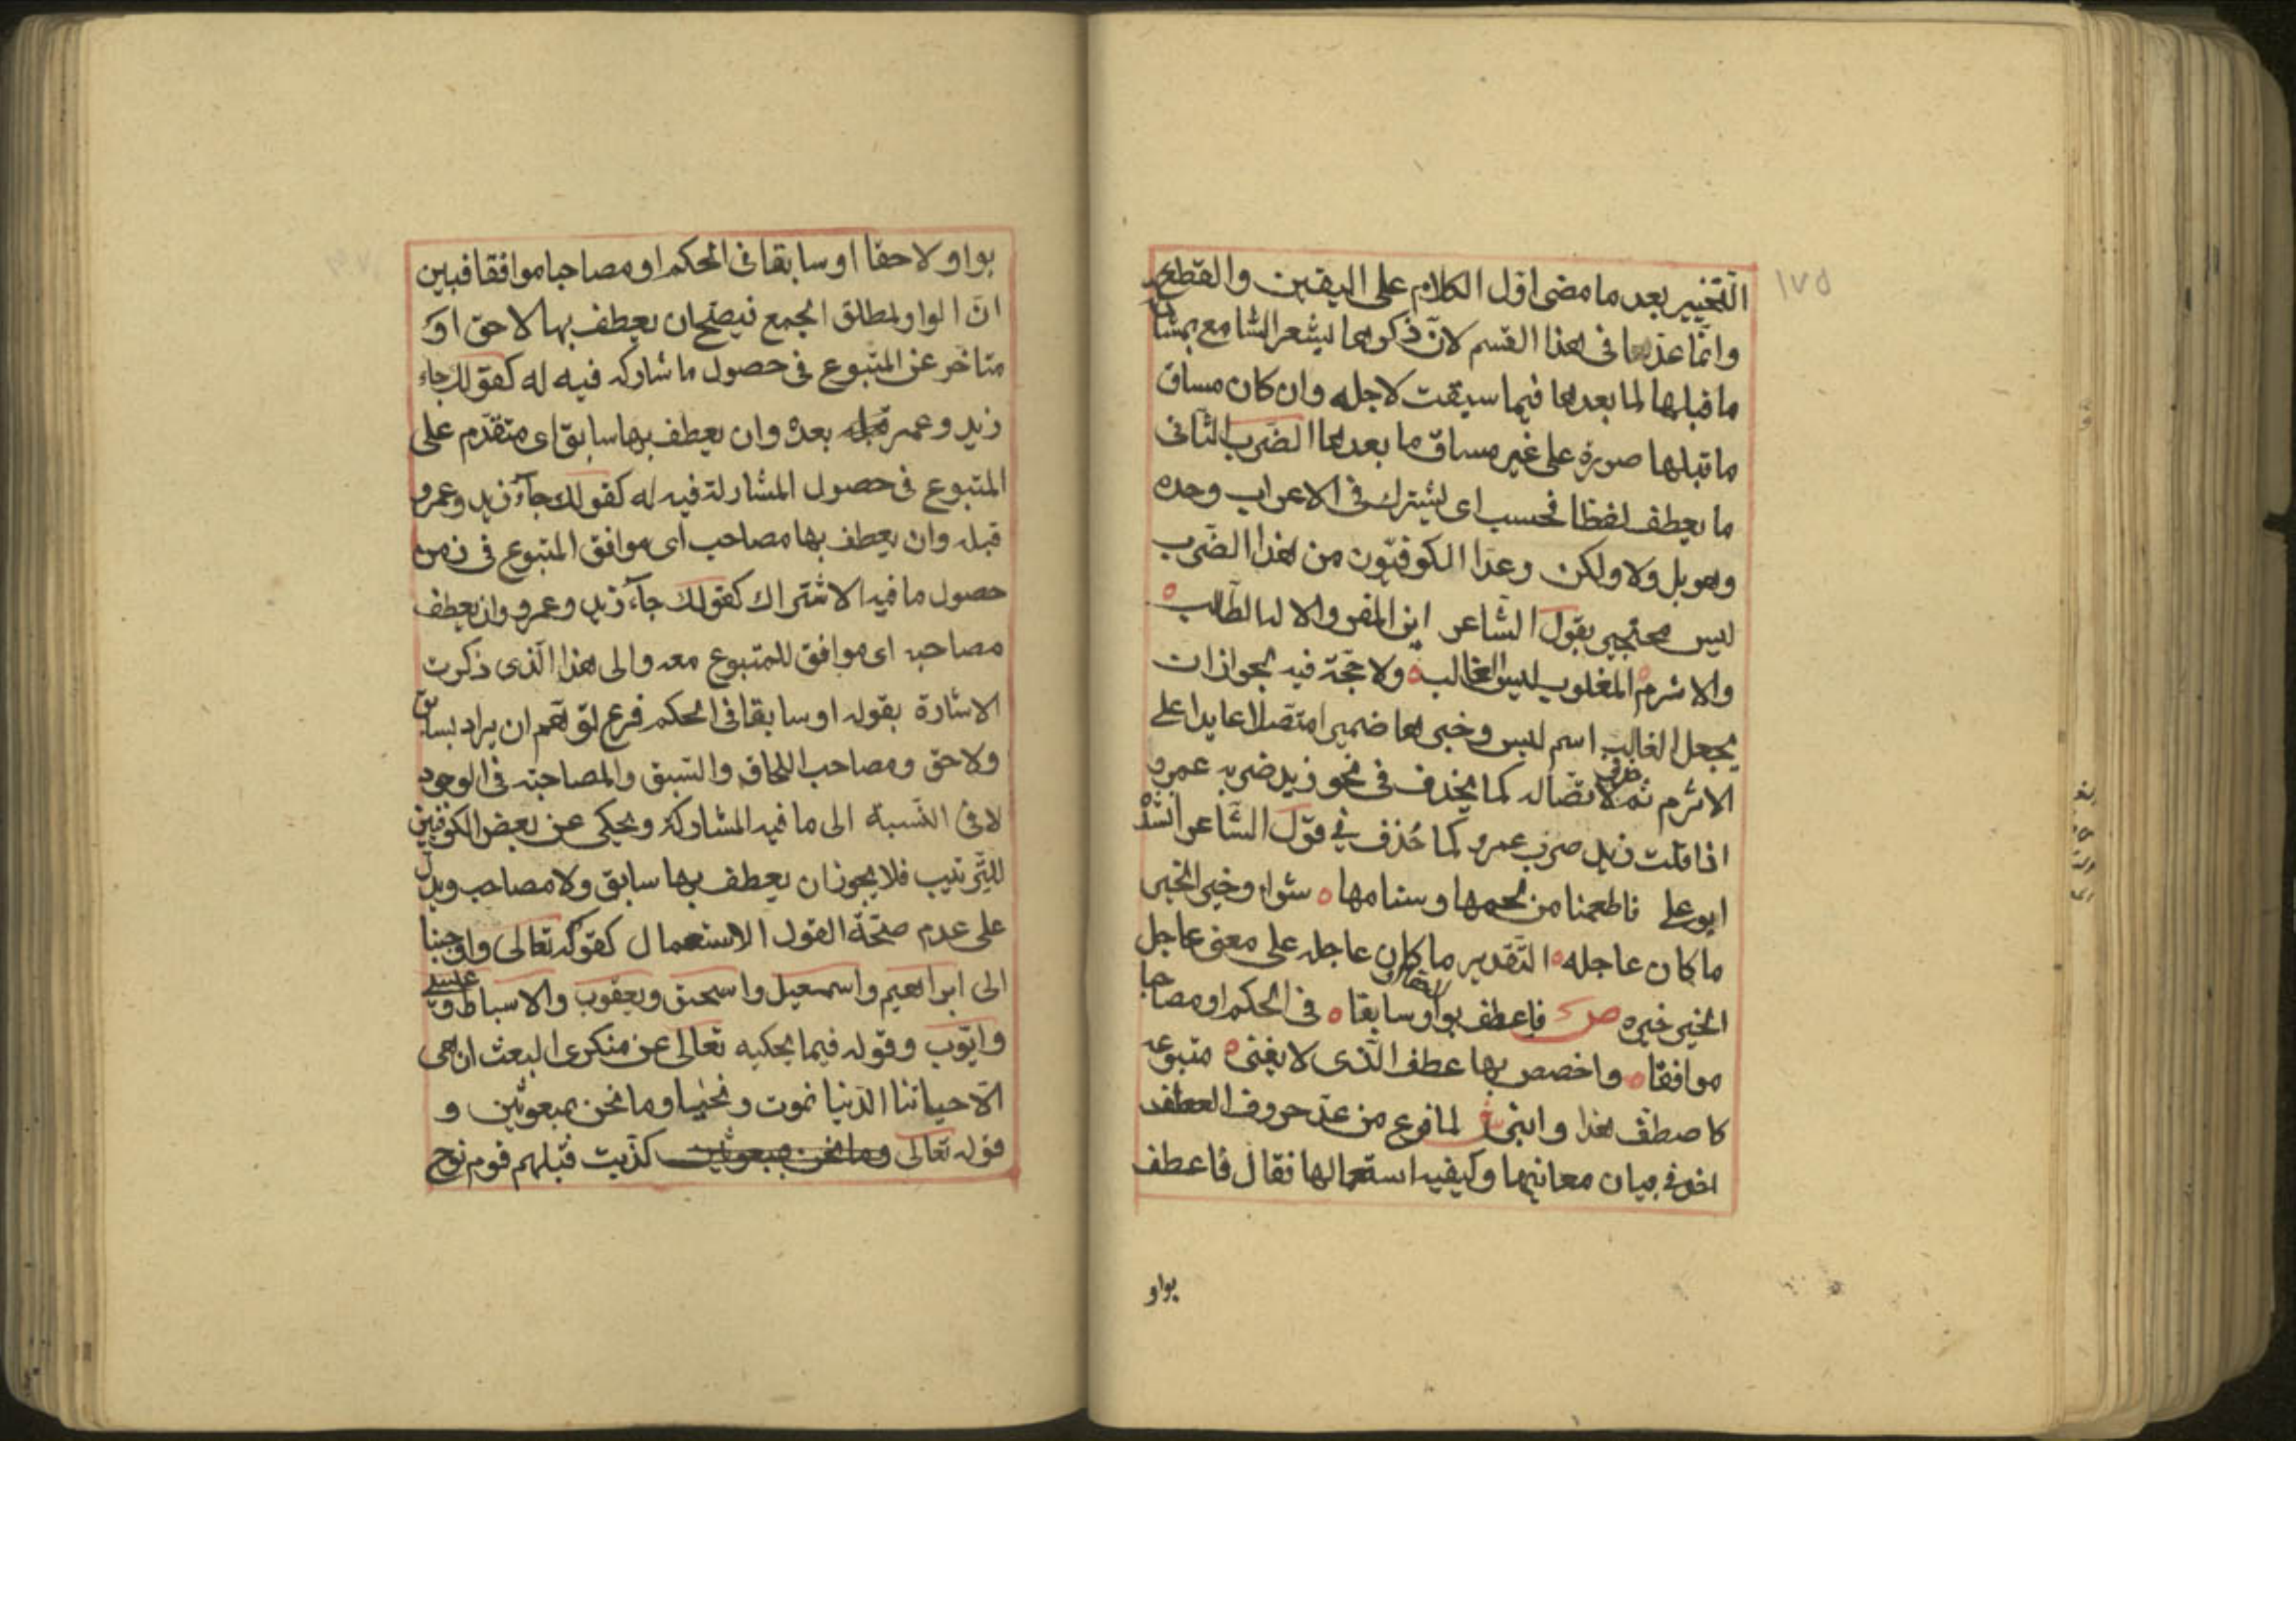 ١٧٥
التخيير بعد ما مضى اول الكلام على اليقين والقطع
وانما عدها فى هذا القسم لان ذكرها يشعر السامع بمشاركة
ما قبلها لما بعدها فيما سيقت لاجله وان كان مساق
ما قبلها صورة على غير مساق ما بعدها الضرب الثانى
ما يعطف لفظا فحسب اى يشترك فى الاعراب وحده
وهو بل ولا ولكن وعدا الكوفيون من هذا الضرب
ليس محتجين بقول الشاعر اين المفر والاله الطالب
والاشرم المغلوب ليس الغالب ولا حجة فيه لجواز ان
يجعل الغالب اسم ليس وخبرها ضميرا متصلا عايدا على
الاشرم ثم حذف لاتصاله كما يحذف فى نحو زيد ضربه عمرو
اذا قلت زيد ضرب عمرو كما حُذف فى قول الشاعر انشده
ابو على فاطعمنا من لحمها وسنامها شواء وخير الخير
ما كان عاجله التقدير ما كان عاجله على معنى عاجل
الخير خيره ص فاعطف بواو سابقا فى الحكم او مصاحبا
موافقا واخصص بها عطف الذى لا يغنى متبوعه
كاصطف هذا وابنى ش لما فرغ من عد حروف العطف
اخذ فى بيان معانيها وكيفية استعمالها فقال فاعطف
بواو
بواو لاحقا او سابقا فى الحكم او مصاحبا موافقا فبين
ان الواو لمطلق الجمع فيصح ان يعطف بها لاحق اى
متاخر عن المتبوع فى حصول ما شاركه فيه له كقولك جاء
زيد وعمرو بعده وان يعطف بها سابق اى متقدم على
المتبوع فى حصول المشاركة فيه له كقولك جآء زيد وعمرو
قبله وان يعطف بها مصاحب اى موافق المتبوع فى زمن
حصول ما فيه الاشتراك كقولك جآء زيد وعمرو وان يعطف
مصاحبه اى موافق للمتبوع معه والى هذا الذى ذكرت
الاشارة بقوله او سابقا فى الحكم فرع لتوهم ان يراد بسابق
ولاحق ومصاحب اللحاق والسبق والمصاحبة فى الوجود
لا فى النسبة الى ما فيه المشاركة ويحكى عن بعض الكوفيين
للترتيب فلا يجوز ان يعطف بها سابق ولا مصاحب ويدل
على عدم صحة القول الاستعمال كقوله تعالى واوحينا
الى ابراهيم واسمعيل واسحق ويعقوب والاسباط وعيسى
وايوب وقوله فيما يحكيه تعالى عن منكرى البعث ان هى
الا حياتنا الدنيا نموت ونحيا وما نحن بمبعوثين و
قوله تعالى وما نحن بمبعوثين كذبت قبلهم قوم نوح